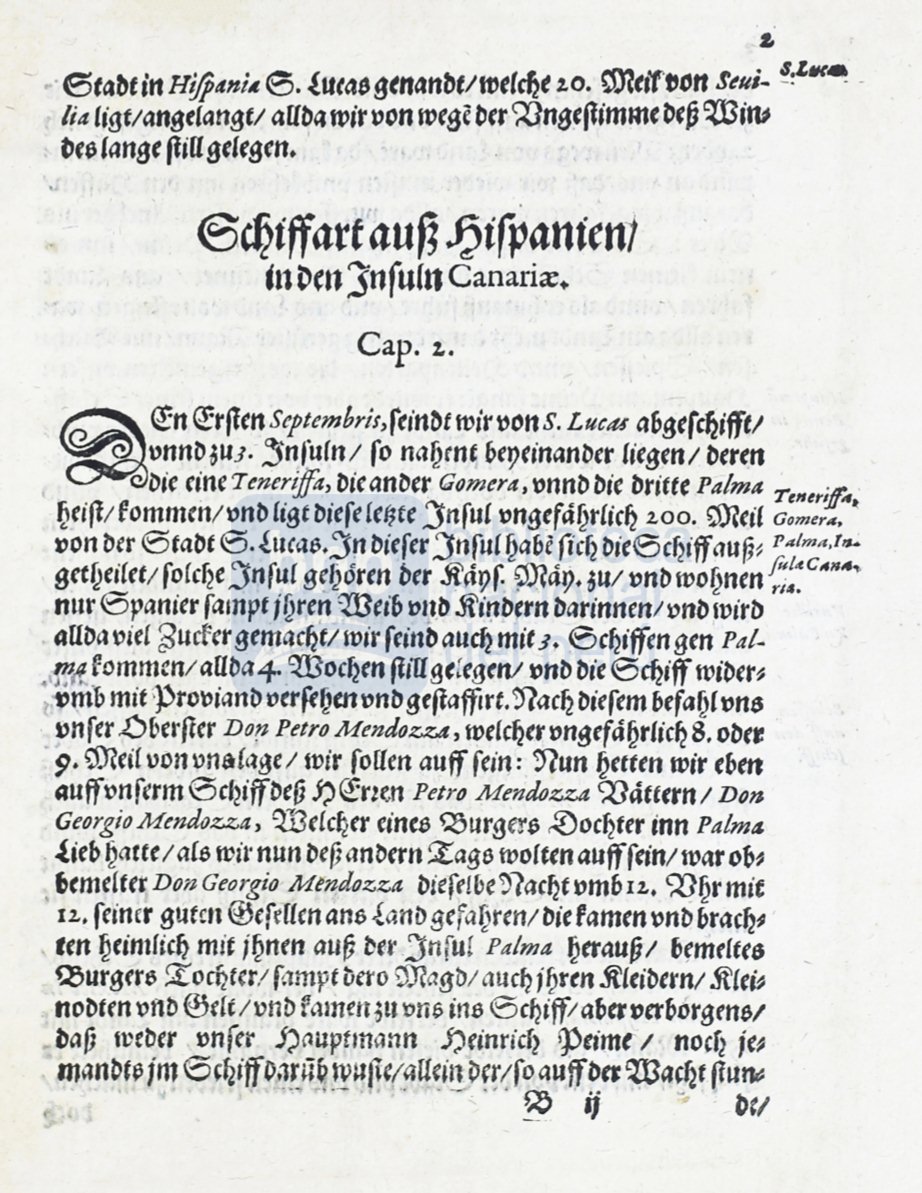 2
Stadt in Hiſpania S. Lucas genandt/ welche 20. Meil von Sevi-
lia ligt/ angelangt/ allda wir von wegẽ der Vngeſtimme deß Win-
des lange ſtill gelegen.
S. Lucas
Schiffart auß Hiſpanien/
in den Inſuln Canariæ.
Cap. 2.
DEn Erſten Septembris, ſeindt wir von S. Lucas abgeſchifft/
vnnd zu 3. Inſuln/ ſo nahent beyeinander liegen/ deren
die eine Teneriffa, die ander Gomera, vnnd die dritte Palma
heiſt/ kommen/ vnd ligt dieſe letzte Inſul vngefåhrlich 200. Meil
von der Stadt S. Lucas. In dieſer Inſul habẽ ſich die Schiff auß-
getheilet/ ſolche Inſul gehören der Kåyſ. Måy. zu/ vnd wohnen
nur Spanier ſampt jhren Weib vnd Kindern darinnen/ vnd wird
allda viel Zucker gemacht/ wir ſeind auch mit 3. Schiffen gen Pal-
ma kommen/ allda 4. Wochen ſtill gelegen/ vnd die Schiff wider-
vmb mit Proviand verſehen vnd geſtaffirt. Nach dieſem befahl vns
vnſer Oberſter Don Petro Mendozza, welcher vngefåhrlich 8. oder
9. Meil von vns lage/ wir ſollen auff ſein: Nun hetten wir eben
auff vnſerm Schiff deß HErren Petro Mendozza Våttern/ Don
Georgio Mendozza, Welcher eines Burgers Dochter inn Palma
Lieb hatte/ als wir nun deß andern Tags wolten auff ſein/ war ob-
bemelter Don Georgio Mendozza dieſelbe Nacht vmb 12. Vhr mit
12. ſeiner guten Geſellen ans Land gefahren/ die kamen vnd brach-
ten heimlich mit jhnen auß der Inſul Palma herauß/ bemeltes
Burgers Tochter/ ſampt dero Magd/ auch jhren Kleidern/ Klei-
nodten vnd Gelt/ vnd kamen zu vns ins Schiff/ aber verborgens/
daß weder vnſer Hauptmann Heinrich Peime/ noch je-
mandts jm Schiff darüb wuſte/ allein der/ ſo auff der Wacht ſtun-
Teneriffa,
Gomera,
Palma, In-
ſula Cana-
ria.
B ij de/
biblioteca
nacional
del perú